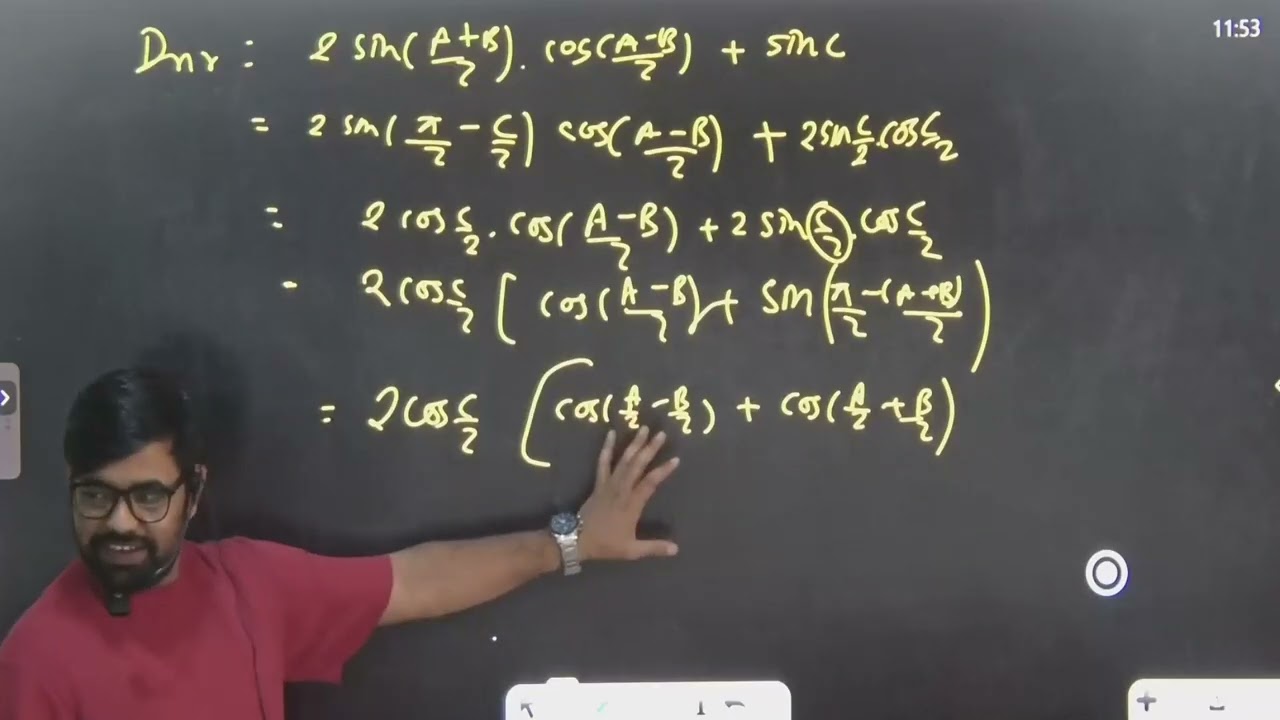 11:53
Dnr : 2 sin(A+B/2). cos(A-B/2) + sin C
= 2 sin(π/2 - C/2) cos(A-B/2) + 2 sin C/2 . cos C/2
= 2 cos C/2 . cos(A-B/2) + 2 sin(C/2). cos C/2
- 2 cos C/2 [ cos(A-B/2) + sin(π/2 - (A+B)/2)
= 2 cos C/2 [ cos(A/2 - B/2) + cos(A/2 + B/2)